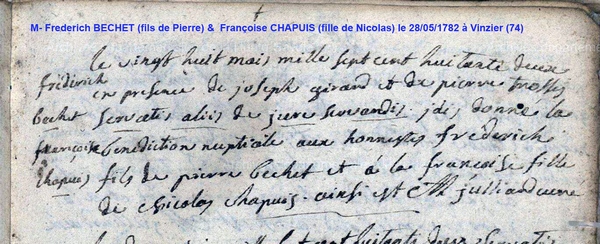 M- Frederich BECHET (fils de Pierre) & Françoise CHAPUIS (fille de Nicolas) le 28/05/1782 à Vinzier (74)
le vingt huit mais mille sept cent huitante deux
fréderich
en presence de joseph girard et de pierre
bechet
servatis aliis de jure servandis jdis donné la
françoise
benediction nuptiale aux honnestes fréderich
chapuis
fils de pierre bechet et á la francoise fille
de Nicolas chapuis. ainsi est julliard curé